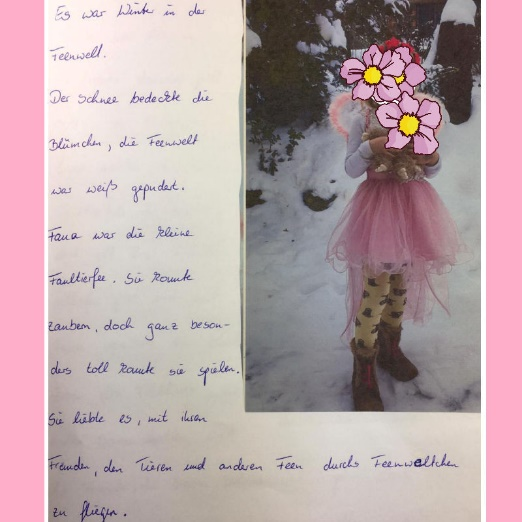 Es war Winter in der
Feenwelt.
Der Schnee bedeckte die
Blümchen, die Feenwelt
war weiß gepudert.
Fana war die kleine
Faultierfee. Sie konnte
zaubern, doch ganz beson-
ders toll konnte sie spielen.
Sie liebte es, mit ihren
Freunden, den Tieren und anderen Feen durchs Feenwäldchen
zu fliegen.